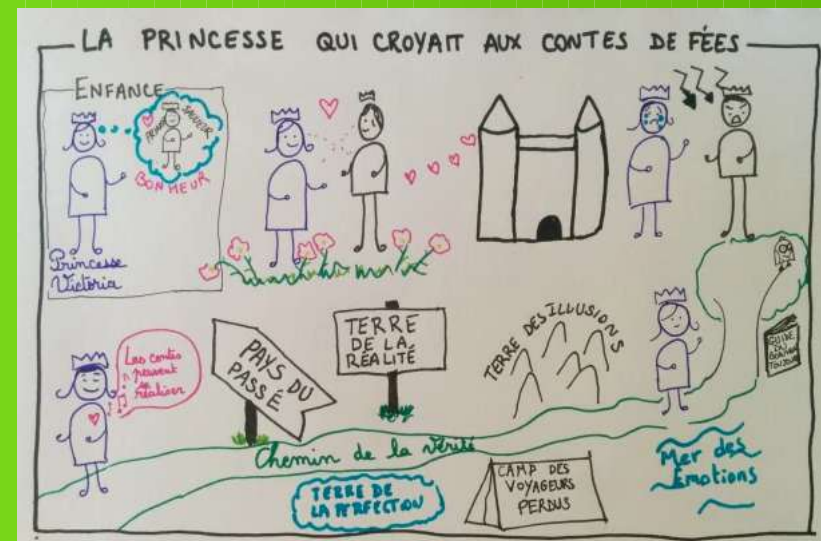 LA PRINCESSE QUI CROYAIT AUX CONTES DE FÉES
ENFANCE
PRINCE SAUVEUR
BONHEUR
Princesse
Victoria
Les contes
peuvent
se
réaliser
PAYS DU
PASSÉ
TERRE
DE LA
RÉALITÉ
TERRE DES ILLUSIONS
GUIDE
DU
TOUJOURS
Chemin de la vérité
TERRE DE
LA PERFECTION
CAMP DES
VOYAGEURS
PERDUS
Mer des
Émotions